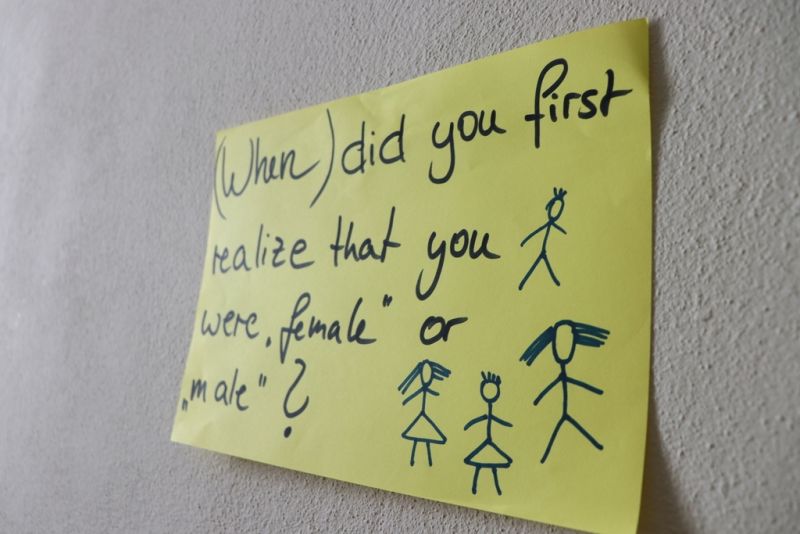 (When) did you first
realize that you
were „female" or
„male" ?